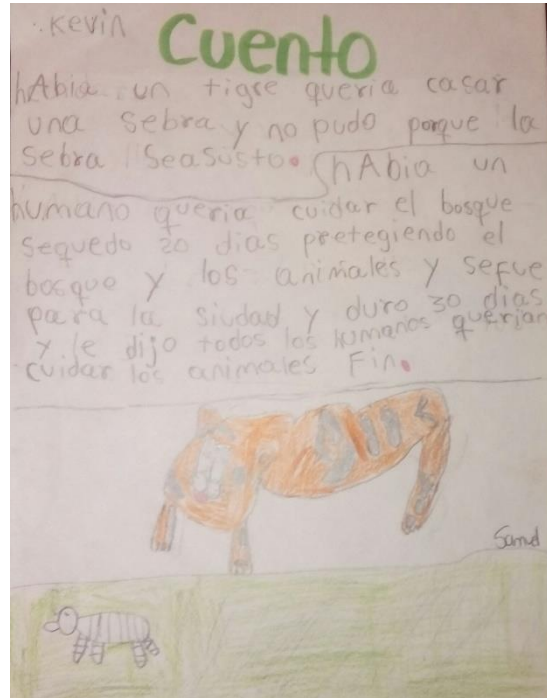 Kevin
Cuento
hAbia un tigre queria casar
una sebra y no pudo porque la
sebra seasusto.
hAbia un
humano queria cuidar el bosque
sequedo 20 dias pretegiendo el
bosque y los animales y sefue
para la siudad y duro 30 dias
y le dijo todos los humanos querian
cuidar los animales Fin.
Samuel